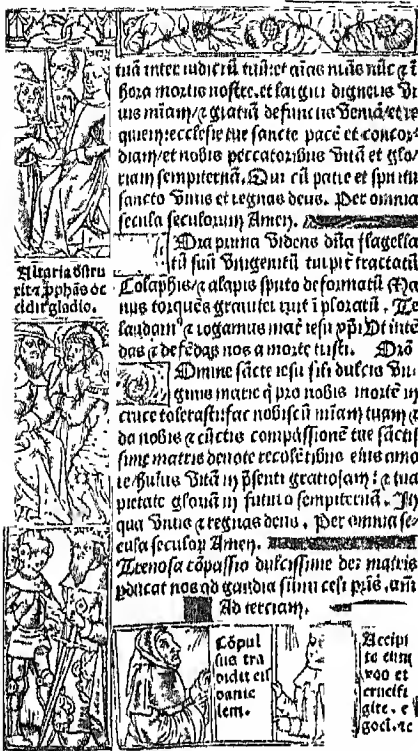 tuã inter iudiciũ tuũ: et aĩas nr̃as nũc ⁊ ĩ
hora mortis nostre. et largiri digneris vi
uis mĩam/⁊ gratiã defunctis veniã/et re
quiem ecclesie tue sancte pacẽ et concor
diam/et nobis peccatoribus vitã et glo/
riam sempiternã. Qui cũ patre et spiritu
sancto viuis et regnas deus. Per omnia
secula seculorum Amen.
Ora prima videns flagella
tũ suũ vnigenitũ turpiter tractatũ
Colaphis ⁊ alapis sputo deformatũ Ma
nus torquẽs grauiter ĩploratũ. Te
laudam⁹ ⁊ rogamus mat̃ iesu xp̃i Vt intẽ
das ⁊ defẽdas nos a morte tristi. Oro
Omine sãcte iesu fili dulcis vir
ginis marie q̃ pro nobis mortẽ in
cruce tolerasti fac nobiscũ mĩam tuam ⁊
da nobis ⁊ cũctis compassionẽ tue sãctis
sime matris deuote recolẽtibus eius amo
re/huius vitã in p̃senti gratiosam: ⁊ tua
pietate gloriã in futuro sempiternã. In
qua viuis ⁊ regnas deus. Per omnia se
cula seculoꝝ Amen.
Tenosa cõpassio dulcissime dei matris
p̱ducat nos ad gaudia summi celi pr̃is. am̃
Ad terciam.
Altaria destru
xit ⁊ p̱phãs oc
cidit gladio.
Cõpul
sus tra
didit eis
danie
lem.
Accipi
te eum
vos et
crucifi
gite. e
go ei. ⁊c.